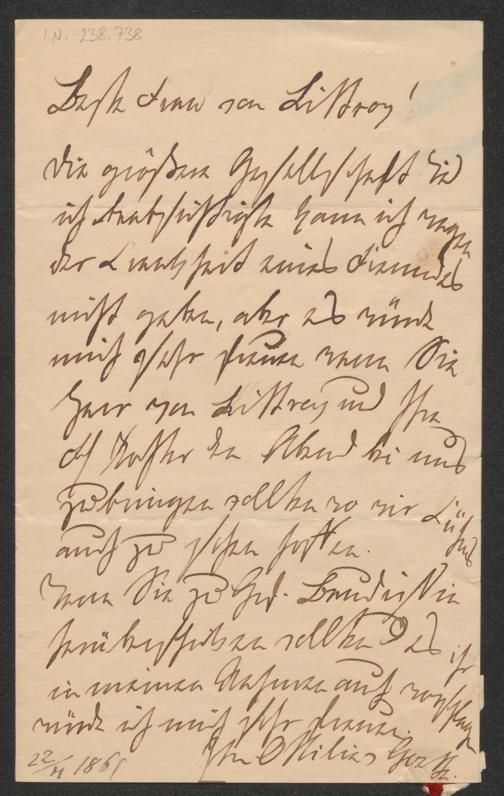 I.N. 238.738
Beste Frau von Littrow!
Die größere Gesellschaft die
ich beabsichtigte kann ich wegen
der Krankheit eines Freundes
nicht geben, aber es würde
mich sehr freuen wenn Sie
Herr von Littrow und Ihre
Tochter den Abend bei uns
zubringen sollten wo wir
auch zu sehen hoffen.
Wenn Sie zu Gf.
herüberschicken sollten es ihr
in meinem Nahmen auch
würde ich mich sehr freuen
Ihre Ottilie v Goethe.
22/11 186